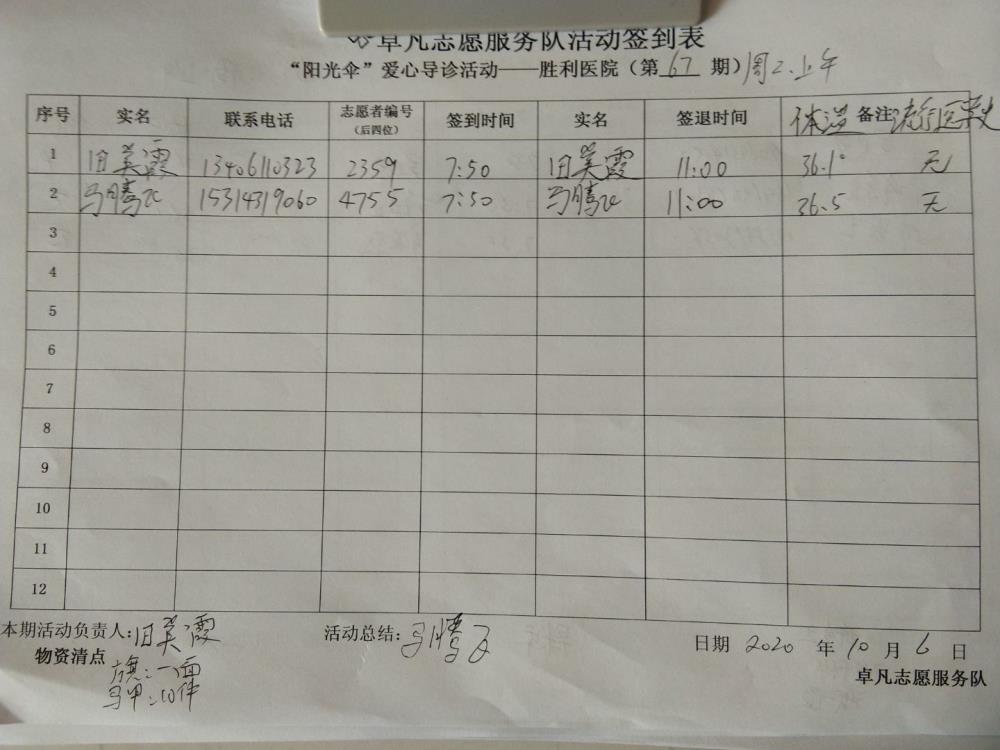 卓凡志愿服务队活动签到表
“阳光伞”爱心导诊活动——胜利医院(第 67 期)周2.上午
序号 实名 联系电话 志愿者编号(后四位) 签到时间 实名 签退时间 体温 备注 流行医学史
1 旧美霞 13406110323 2359 7:50 旧美霞 11:00 36.1° 无
2 马腾飞 15314319060 4755 7:50 马腾飞 11:00 36.5 无
3
4
5
6
7
8
9
10
11
12
本期活动负责人:旧美霞 活动总结:马腾飞 日期 2020 年 10 月 6 日
物资清点 卓凡志愿服务队
旗:一面
马甲:10件